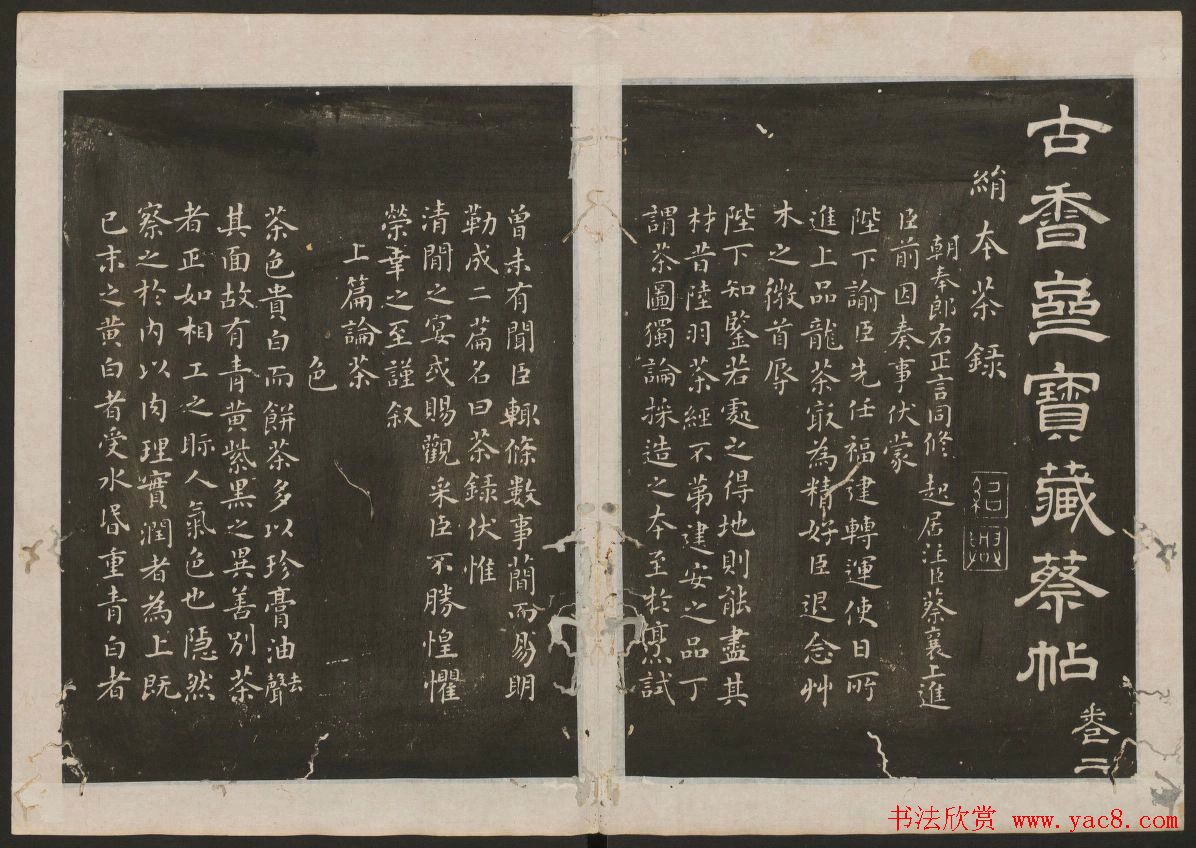 古香齋寶藏蔡帖
卷二
絹本茶錄
紹興
朝奉郎右正言同修起居注臣蔡襄上進
臣前因奏事伏蒙
陛下諭臣先任福建轉運使日所
進上品龍茶㝡為精好臣退念艸
木之微首辱
陛下知鑒若處之得地則能盡其
材昔陸羽茶經不第建安之品丁
謂茶圖獨論採造之本至於烹試
曾未有聞臣輒條數事蕳而易明
勒成二篇名曰茶錄伏惟
清閒之宴或賜觀采臣不勝惶懼
榮幸之至謹叙
上篇論茶
色
茶色貴白而餅茶多以珍膏油去聲
其面故有青黃紫黑之異善別茶
者正如相工之眎人氣色也隱然
察之於內以肉理實潤者為上既
已末之黃白者受水昏重青白者
书法欣赏 www.yac8.com